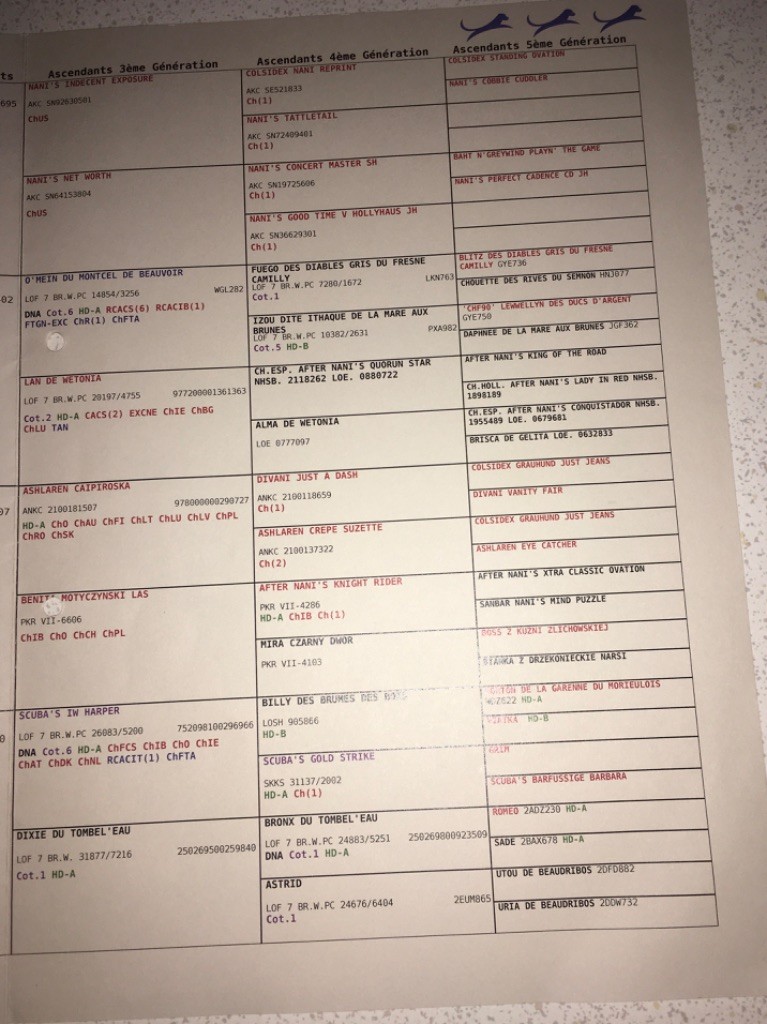 ts
Ascendants 3ème Génération
Ascendants 4ème Génération
Ascendants 5ème Génération
695
NANI'S INDECENT EXPOSURE
AKC SN92630501
ChUS
NANI'S NET WORTH
AKC SN64153804
ChUS
02
O'MEIN DU MONTCEL DE BEAUVOIR
LOF 7 BR.W.PC 14854/3256 WGL282
DNA Cot.6 HD-A RCACS(6) RCACIB(1)
FTGN-EXC ChR(1) ChFTA
LAN DE WETONIA
LOF 7 BR.W.PC 20197/4755 977200001361363
Cot.2 HD-A CACS(2) EXCNE ChIE ChBG
ChLU TAN
07
ASHLAREN CAIPIROSKA
ANKC 2100181507 978000000290727
HD-A ChO ChAU ChFI ChLT ChLU ChLV ChPL
ChRO ChSK
MOTYCZYNSKI LAS
PKR VII-6606
ChIB ChO ChCH ChPL
0
SCUBA'S IW HARPER
LOF 7 BR.W.PC 26083/5200 752098100296966
DNA Cot.6 HD-A ChFCS ChIB ChO ChIE
ChAT ChDK ChNL RCACIT(1) ChFTA
DIXIE DU TOMBEL'EAU
LOF 7 BR.W. 31877/7216 250269500259840
Cot.1 HD-A
COLSIDEX NANI REPRINT
AKC SE521833
Ch(1)
NANI'S TATTLETAIL
AKC SN72409401
Ch(1)
NANI'S CONCERT MASTER SH
AKC SN19725606
Ch(1)
NANI'S GOOD TIME V HOLLYHAUS JH
AKC SN36629301
Ch(1)
FUEGO DES DIABLES GRIS DU FRESNE
CAMILLY
LOF 7 BR.W.PC 7280/1672 LKN763
Cot.1
IZOU DITE ITHAQUE DE LA MARE AUX
BRUNES
LOF 7 BR.W.PC 10382/2631 PXA982
Cot.5 HD-B
CH.ESP. AFTER NANI'S QUORUN STAR
NHSB. 2118262 LOE. 0880722
ALMA DE WETONIA
LOE 0777097
DIVANI JUST A DASH
ANKC 2100118659
Ch(1)
ASHLAREN CREPE SUZETTE
ANKC 2100137322
Ch(2)
AFTER NANI'S KNIGHT RIDER
PKR VII-4286
HD-A ChIB Ch(1)
MIRA CZARNY DWOR
PKR VII-4103
BILLY DES BRUMES DES
LOSH 905866
HD-B
SCUBA'S GOLD STRIKE
SKKS 31137/2002
HD-A Ch(1)
BRONX DU TOMBEL'EAU
LOF 7 BR.W.PC 24883/5251 250269800923509
DNA Cot.1 HD-A
ASTRID
LOF 7 BR.W.PC 24676/6404 2EUM865
Cot.1
COLSIDEX STANDING OVATION
NANI'S COBBIE CUDDLER
BAHT N'GREYWIND PLAYN' THE GAME
NANI'S PERFECT CADENCE CD JH
BLITZ DES DIABLES GRIS DU FRESNE
CAMILLY GYE736
CHOUETTE DES RIVES DU SEMNON HNJ077
'CHF90' LEWWELLYN DES DUCS D'ARGENT
GYE750
DAPHNEE DE LA MARE AUX BRUNES JGF362
AFTER NANI'S KING OF THE ROAD
CH.HOLL. AFTER NANI'S LADY IN RED NHSB.
1898189
CH.ESP. AFTER NANI'S CONQUISTADOR NHSB.
1955489 LOE. 0679681
BRISCA DE GELITA LOE. 0632833
COLSIDEX GRAUHUND JUST JEANS
DIVANI VANITY FAIR
COLSIDEX GRAUHUND JUST JEANS
ASHLAREN EYE CATCHER
AFTER NANI'S XTRA CLASSIC OVATION
SANBAR NANI'S MIND PUZZLE
Z KUZNI ZLICHOWSKIEJ
Z DRZEKONIECKIE NARSI
DE LA GARENNE DU MORIEULOIS
HD-A
HD-B
SCUBA'S BARFUSSIGE BARBARA
ROMEO 2ADZ230 HD-A
SADE 2BAX678 HD-A
UTOU DE BEAUDRIBOS 2DFD882
URIA DE BEAUDRIBOS 2DDW732